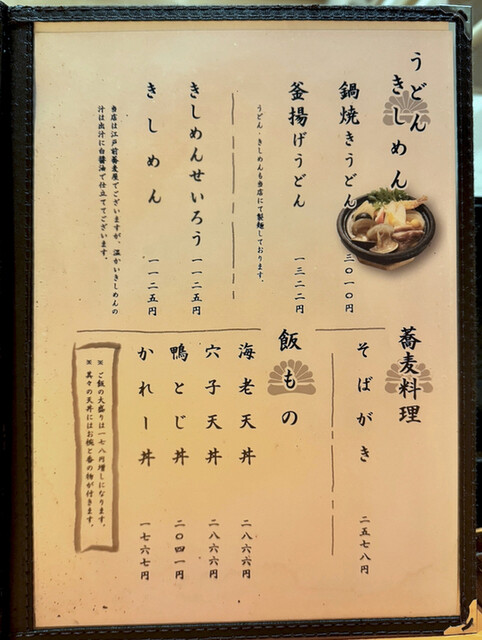 うどん
きしめん
鍋焼きうどん 三〇一〇円
釜揚げうどん 一三二二円
うどん・きしめんも当店にて製麺しております。
きしめんせいろう 一一二五円
きしめん 一一二五円
当店は江戸前蕎麦屋でございますが、温かいきしめんの
汁は出汁に白醤油で仕立ててございます。
蕎麦料理
そばがき 二五七八円
飯もの
海老天丼 二八六六円
穴子天丼 二八六六円
鴨とじ丼 二〇四一円
かれー丼 一七六七円
※ ご飯の大盛りは一七八円増しになります。
※ 其々の天丼にはお椀と香の物が付きます。